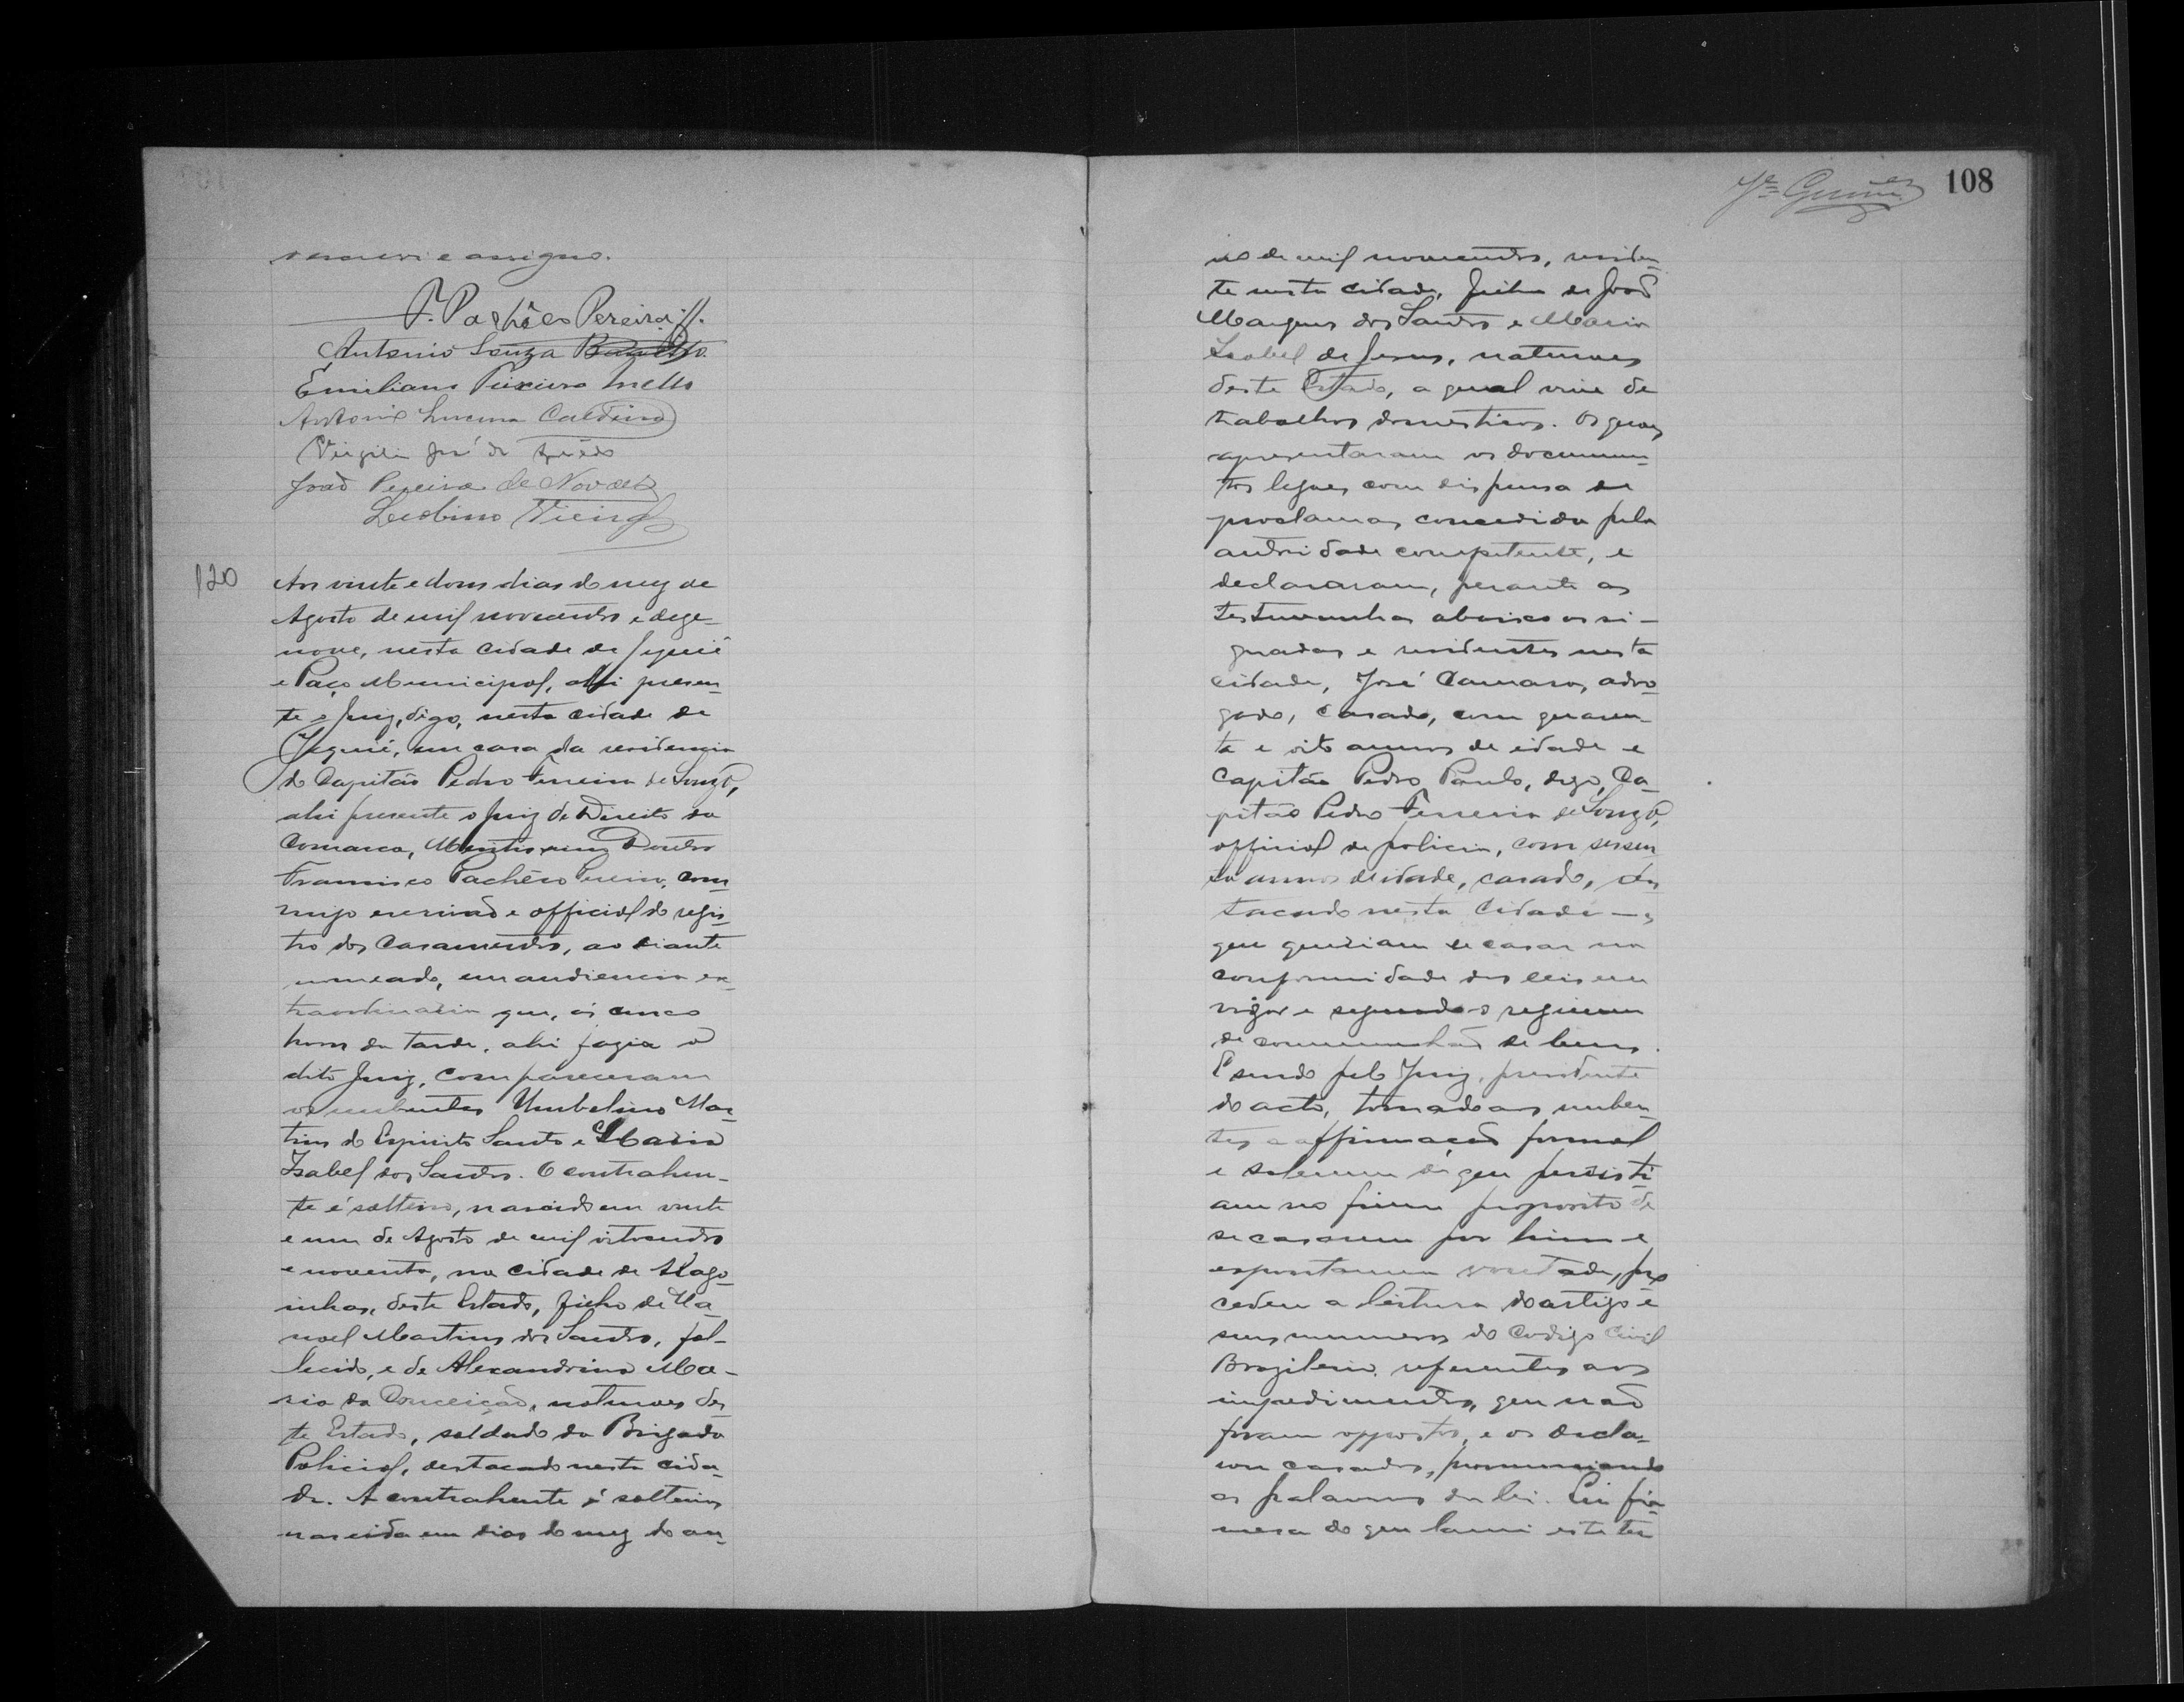 escrevi e assigno.
F. Pachêco Pereira //.
Antonio Souza Barretto
Emiliano Mello
Antonio Lucena Caldeira
Virgilio José de
João Pereira de Novaes
Leobino Vieira
120
Aos vinte e dous dias do mez de
Agosto de mil novecentos e deze-
nove, nesta cidade de Jequié
e Paço Municipal, ahi presen-
te o Juiz, digo, nesta cidade de
Jequié, em casa da residencia
do Capitão Pedro Ferreira de Souza,
ahi presente o Juiz de Direito da
Comarca, Doutor
Francisco Pachêco Pereira, com-
migo escrivão e official do regis-
tro dos Casamentos, ao diante
nomeado, em audiencia ex-
traordinaria que, ás cinco
horas da tarde, ahi fazia o
dito Juiz, compareceram
os nubentes Umbelino Mar-
tins do Espirito Santo e Maria
Izabel dos Santos. O contrahen-
te é solteiro, nascido em vinte
e um de Agosto de mil oitocentos
e noventa, na cidade de Alago-
inhas, deste Estado, filho de Ma-
noel Martins dos Santos, fal-
lecido, e de Alexandrina Ma-
ria da Conceição, naturaes des-
te Estado, soldado da Brigada
Policial, destacado nesta cida-
de. A contrahente é solteira,
nascida em dias do mez do an-
108
no de mil novecentos, residen-
te nesta cidade, filha de João
Marques dos Santos e Maria
Izabel de Jesus, naturaes
deste Estado, a qual vive de
trabalhos domesticos. Os quaes
apresentaram os documen-
tos legaes com dispensa de
proclamas, concedida pela
autoridade competente, e
declararam, perante as
testemunhas abaixo assi-
gnadas e residentes nesta
cidade, José Camara, advo-
gado, casado, com quaren-
ta e oito annos de idade e
Capitão Pedro Paulo, digo, Ca-
pitão Pedro Ferreira de Souza,
official de policia, com sessen-
ta annos de idade, casado, des-
tacado nesta cidade —,
que queriam se casar na
conformidade das leis em
vigor e segundo o regimen
de communhão de bens.
E sendo pelo Juiz, presidente
do acto, tomado aos nuben-
tes a affirmação formal
e solemne de que persisti-
am no firme proposito de
se casarem por livre e
espontanea vontade, pro-
cedeu a leitura do artigo e
seus numeros do Codigo Civil
Brazileiro, referentes aos
impedimentos, que não
foram oppostos, e os decla-
rou casados, pronunciando
as palavras da lei. Em fir-
mesa do que lavrei este ter-